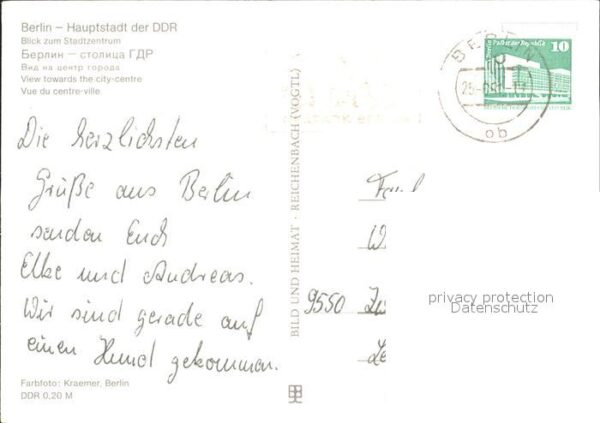 Berlin – Hauptstadt der DDR
Blick zum Stadtzentrum
Берлин — столица ГДР
Вид на центр города
View towards the city-centre
Vue du centre-ville
Die herzlichsten
Grüße aus Berlin
senden Euch
Elke und Andreas.
Wir sind gerade auf
einen Hund gekommen.
Farbfoto: Kraemer, Berlin
DDR 0,20 M
BILD UND HEIMAT · REICHENBACH (VOGTL)
BERLIN
ob
Palast der Republik 10
9550
privacy protection
Datenschutz